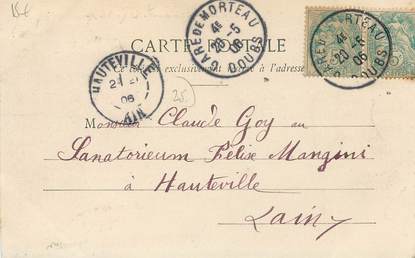 15€
GARE DE MORTEAU
4E
20-5
06
DOUBS
GARE DE MORTEAU
4E
20-5
06
DOUBS
CARTE POSTALE
Ce côté exclusivement réservé à l'adresse
HAUTEVILLE
21
06
AIN
25
Monsieur Claude Goy au
Sanatorieum Félise Mangini
à Hauteville
Lain